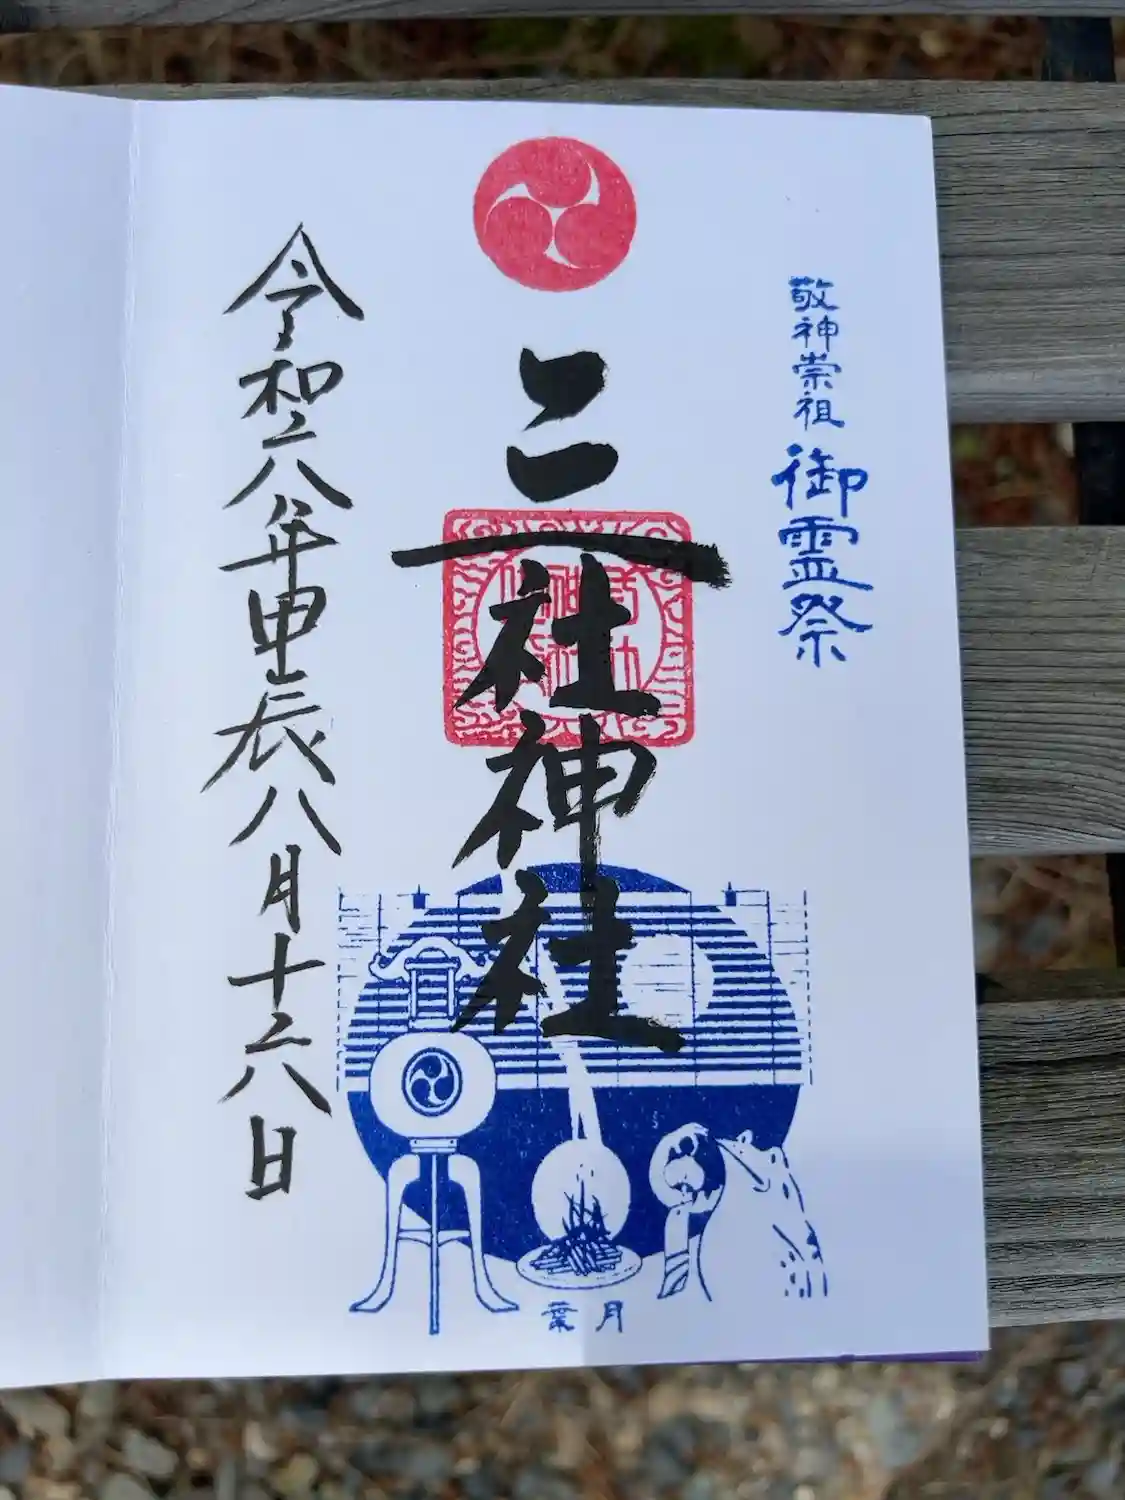 敬神崇祖 御霊祭
三社神社
令和六年甲辰八月十六日
葉月